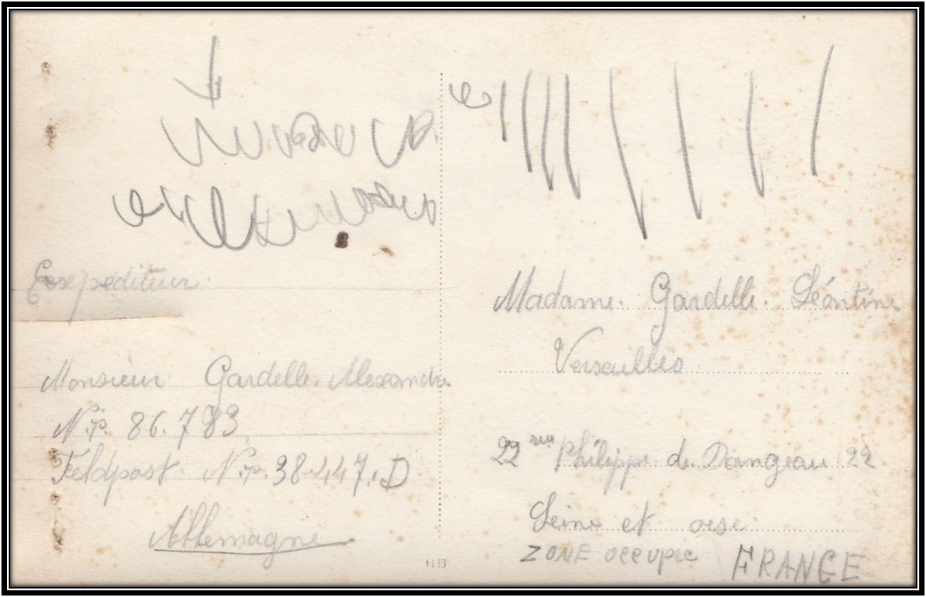 Exsepediteur.
Monsieur Gardelle. Alexandre
Nr. 86.783.
Feldpost Nr. 38.447.D
Allemagne
Madame. Gardelle. Léontine
Versailles
22 rue Philippe de Dangeau 22.
Seine et oise
ZONE occupie FRANCE